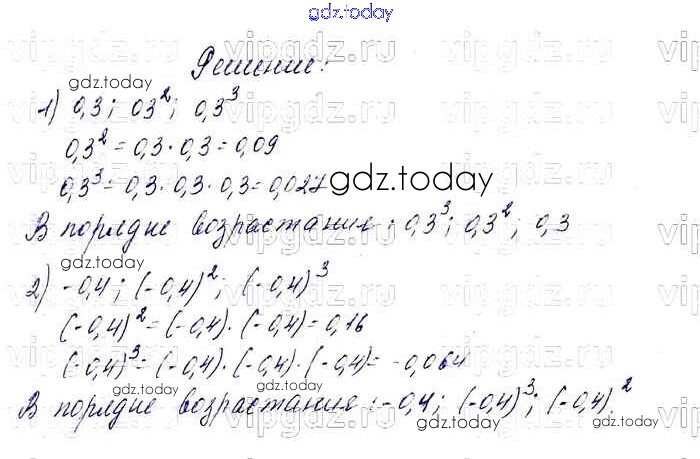 gdz.today
Решение:
gdz.today
1) 0,3; 03²; 0,3³
0,3² = 0,3 · 0,3 = 0,09
0,3³ = 0,3 · 0,3 · 0,3 = 0,027
gdz.today
В порядке возрастания: 0,3³; 0,3²; 0,3
gdz.today
2) -0,4; (-0,4)²; (-0,4)³
(-0,4)² = (-0,4) · (-0,4) = 0,16
(-0,4)³ = (-0,4) · (-0,4) · (-0,4) = -0,064
gdz.today
gdz.today
В порядке возрастания: -0,4; (-0,4)³; (-0,4)²
gdz.today
gdz.today
vipgdz.ru